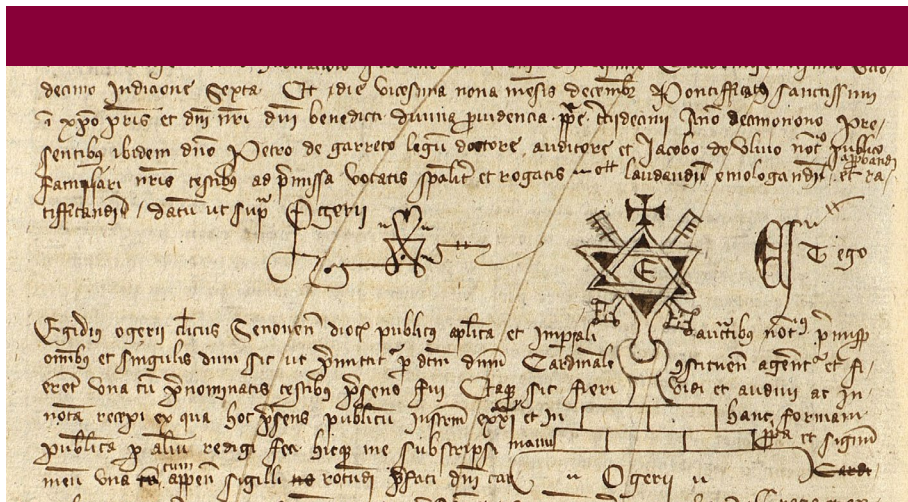 decimo Indicione Sexta Et die vicesima nona mēsis decembr Pontifficatꝯ sanctissimi
ī xp̄o pr̄is et dn̄i nr̄i dn̄i benedicti divina ꝓvidencia pp̄e t̄cijdecimi Anno decimonono Pre
sentibꝯ ibidem dn̄o Petro de garreto legū doctore auditore et Jacobo de Ulivo not᷒ publico
famil̄iari nr̄is testibꝯ ad p̄missa vocatis sp̄alit̄ et rogatis laudandi emologandi approbandi et ra
tifficandi / datū ut supᷓ Ogerii
E
Et ego
Egidiꝯ ogerii cl̄icus Senonen̄ dioc̄ publicꝯ ap̄lica et Imp̄iali auct̄tibꝯ not᷒ p̄missꝭ
om̄ibꝯ et singulis dum sic ut p̄mittit᷑ ꝑ dc̄m dn̄m Cardinale ꝯstituen̄ agent᷑ et fi
erēt una cū p̄nominatis testibꝯ p̄sens fui Eaqꝫ sic fieri vidi et audivi ac in
notā recepi ex qua hoc p̄sens publicū Instrm̄ ext̄xi et in hanc formam
publicā ꝑ aliū redigi feci hicqꝫ me subscripsi manu ꝓp̄a et signū
meū una cum appen̄ sigilli rotūdi p̄fati dn̄i car
Ogerii